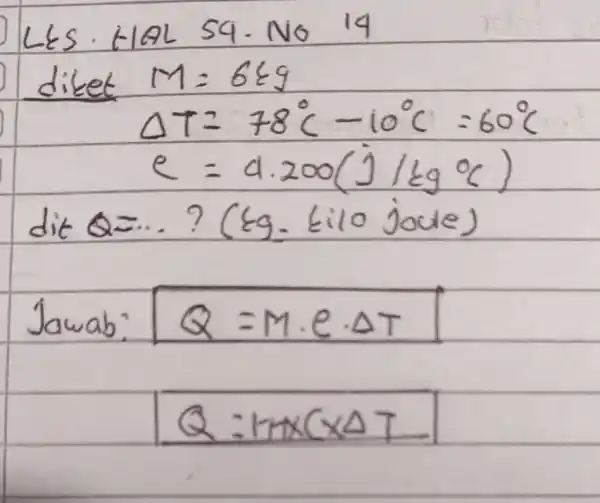 LKS. HAL 59. No 14
diket M = 6kg
ΔT = 78°C - 10°C = 60°C
c = 4.200 (j/kg °C)
dit Q = ... ? (kg - kilo joule)
Jawab: Q = M . c . ΔT
Q = m x C x Δ T